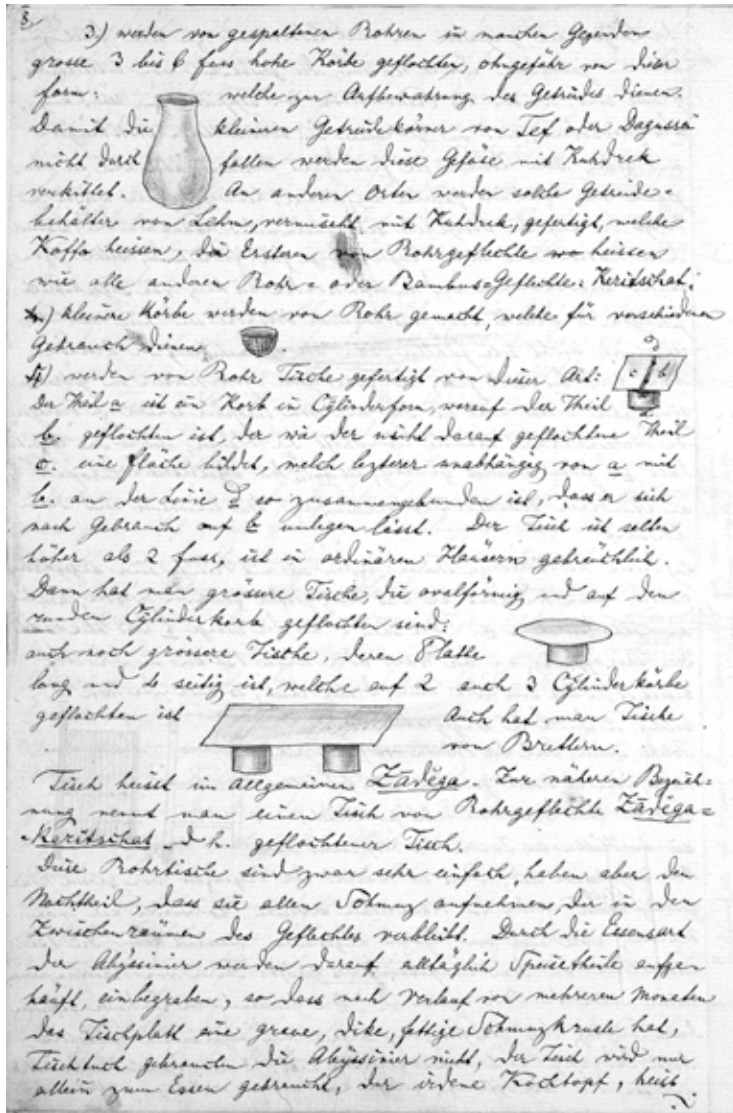 8.
3.) werden von gespaltenen Rohren in manchen Gegenden
grosse 3 bis 6 fuss hohe Körbe geflochten, ohngefähr von dieser
form: welche zur Aufbewahrung des Getreides dienen.
Damit die kleineren Getreidekörner von Tef oder Dagussa
nicht durch fallen werden diese Gefäse mit Kuhdrek
verkittet. An anderen Orten werden solche Getreide=
behälter von Lehm, vermischt mit Kuhdrek, gefertigt, welche
Koffa heissen, die Ersteren von Rohrgeflechte heissen
wie alle anderen Rohr= oder Bambus=Geflechte: Keritschat;
kleinere Körbe werden von Rohr gemacht, welche für verschiedenen
Gebrauch dienen.
werden von Rohr Tische gefertigt von dieser Art: c b
Der Theil a ist ein Korb in Cÿlinderform, worauf der Theil a
b. geflochten ist, der wie der nicht darauf geflochtene Theil
c. eine fläche bildet, welch lezterer unabhängig von a mit
b. an der Linie d so zusammengebunden ist, dass er sich
nach Gebrauch auf b umlegen lässt. Der Tisch ist selten
höher als 2 fuss, ist in ordinären Häusern gebräuchlich.
Dann hat man grössere Tische, die ovalförmig und auf den
runden Cÿlinderkorb geflochten sind:
auch noch grössere Tische, deren Platte
lang und 4 seitig ist, welche auf 2 auch 3 Cÿlinderkörbe
geflochten ist Auch hat man Tische
von Brettern.
Tisch heisst im allgemeinen Zadēga. Zur näheren Bezeich=
nung nennt man einen Tisch von Rohrgeflechte Zadēga=
Keritschat d. h. geflochtener Tisch.
Diese Rohrtische sind zwar sehr einfach, haben aber den
Nachtheil, dass sie allen Schmuz aufnehmen, der in den
Zwischenräumen des Geflechtes verbleibt. Durch die Essensart
der Abÿssinier werden darauf alltäglich Speisetheile aufge
häuft, einbegraben, so dass nach Verlauf von mehreren Monaten
das Tischplatt eine graue, dike, fettige Schmuzkruste hat,
Tischtuch gebrauchen die Abÿssinier nicht, der Tisch wird nur
allein zum Essen gebraucht, der irdene Kochtopf, heist